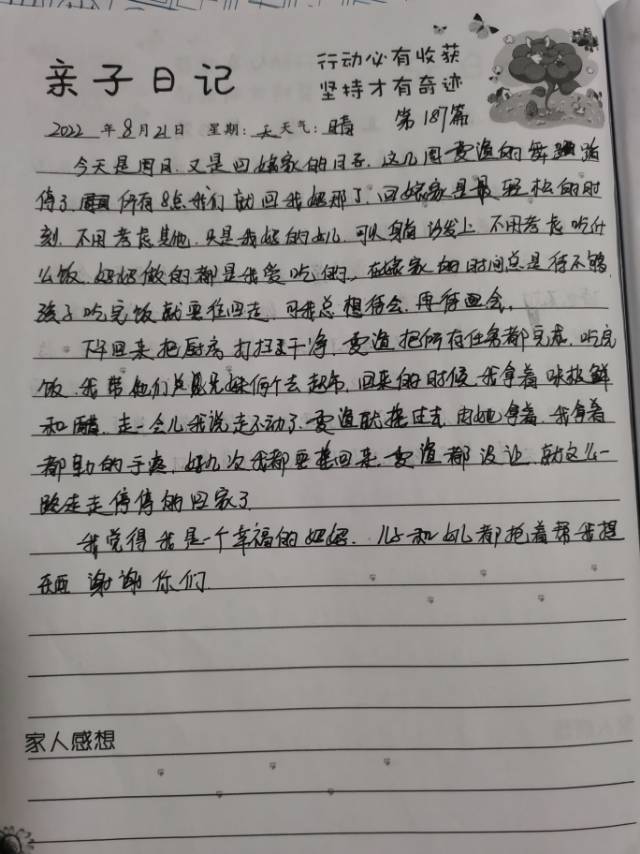 亲子日记
行动必有收获
坚持才有奇迹
第187篇
2022年8月21日 星期:天 天气:晴
今天是周日,又是回娘家的日子,这几周 的舞蹈
停了, 所有8点我们就回我妈那了,回娘家是最轻松的时
刻,不用考虑其他,只是我妈的女儿,可以 沙发上,不用考虑吃什
么饭,妈妈做的都是我爱吃的,在娘家的时间总是待不够,
孩子吃完饭就要往回走,可我总想待会,再待一会。
下午回来把厨房打扫干净, 把所有任务都完成,吃完
饭,我带他们 兄妹俩个去超市,回来的时候,我拿着味极鲜
和醋,走一会儿我说走不动了, 就抢过去,由她拿着,我拿着
都勒的手疼,好几次我都要抢回来, 都没让,就这么一
路走走停停的回家了。
我觉得我是一个幸福的妈妈,儿子和女儿都抢着帮我提
东西,谢谢你们
家人感想